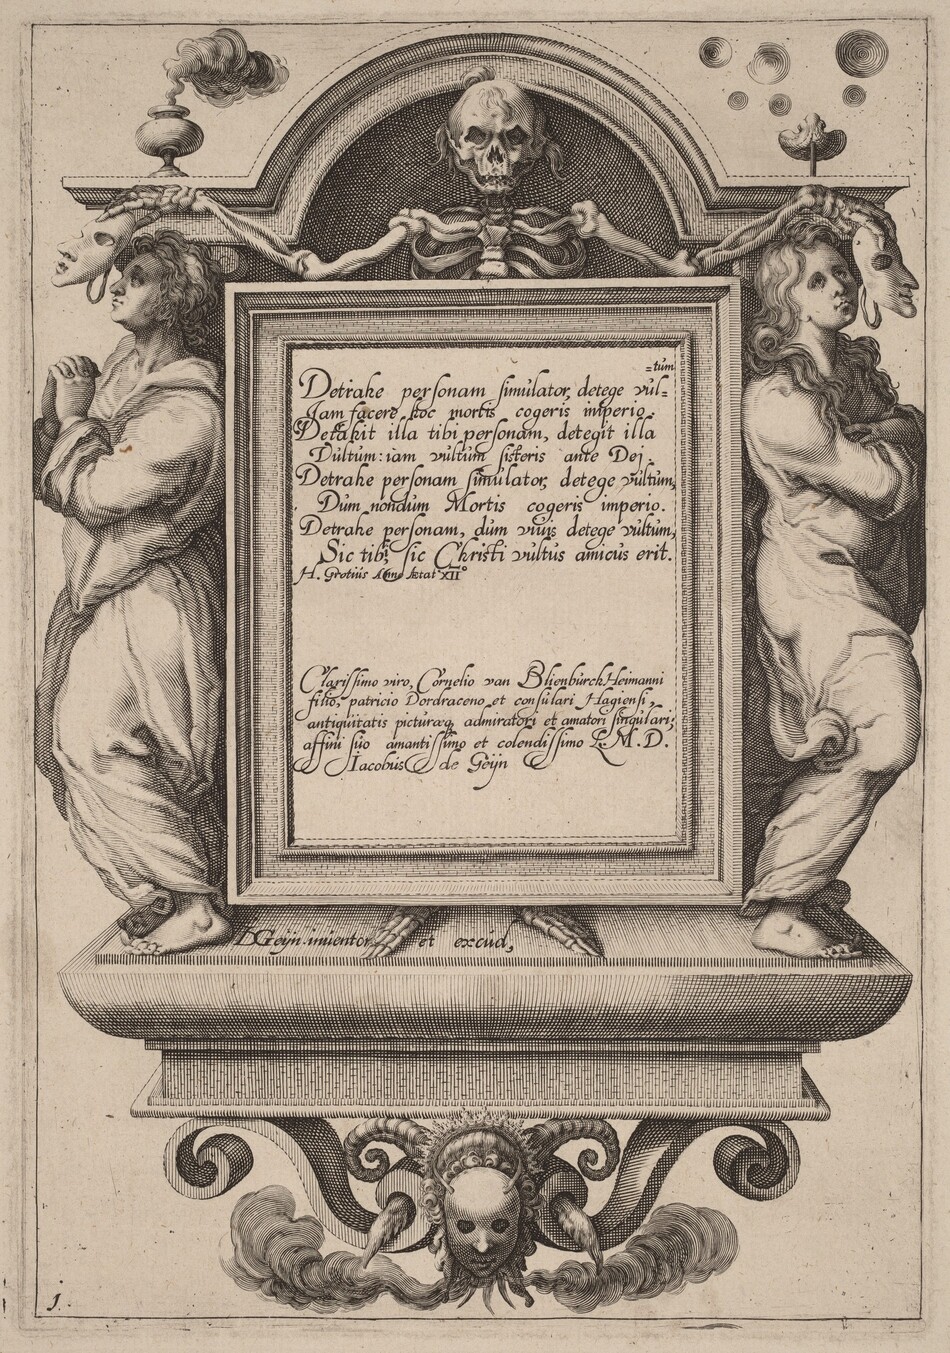 Detrahe personam simulator, detege vul=
=tum
Jam facere hoc mortis cogeris imperio.
Detrahit illa tibi personam, detegit illa
Vultum: iam vultum sisteris ante Dej.
Detrahe personam simulator, detege vultum,
Dum nondum Mortis cogeris imperio.
Detrahe personam, dum viuis detege vultum,
Sic tibi, sic Christi vultus amicus erit.
H. Grotius Ætat XII°
Clarissimo viro, Cornelio van Blienburch Heimanni
filio, patricio Dordraceno et consulari Hagiensi,
antiquitatis picturæq admiratori et amatori singulari,
affini suo amantissimo et colendissimo L.M.D.
Iacobus de Geijn
Geijn inuentor et excud,
1.